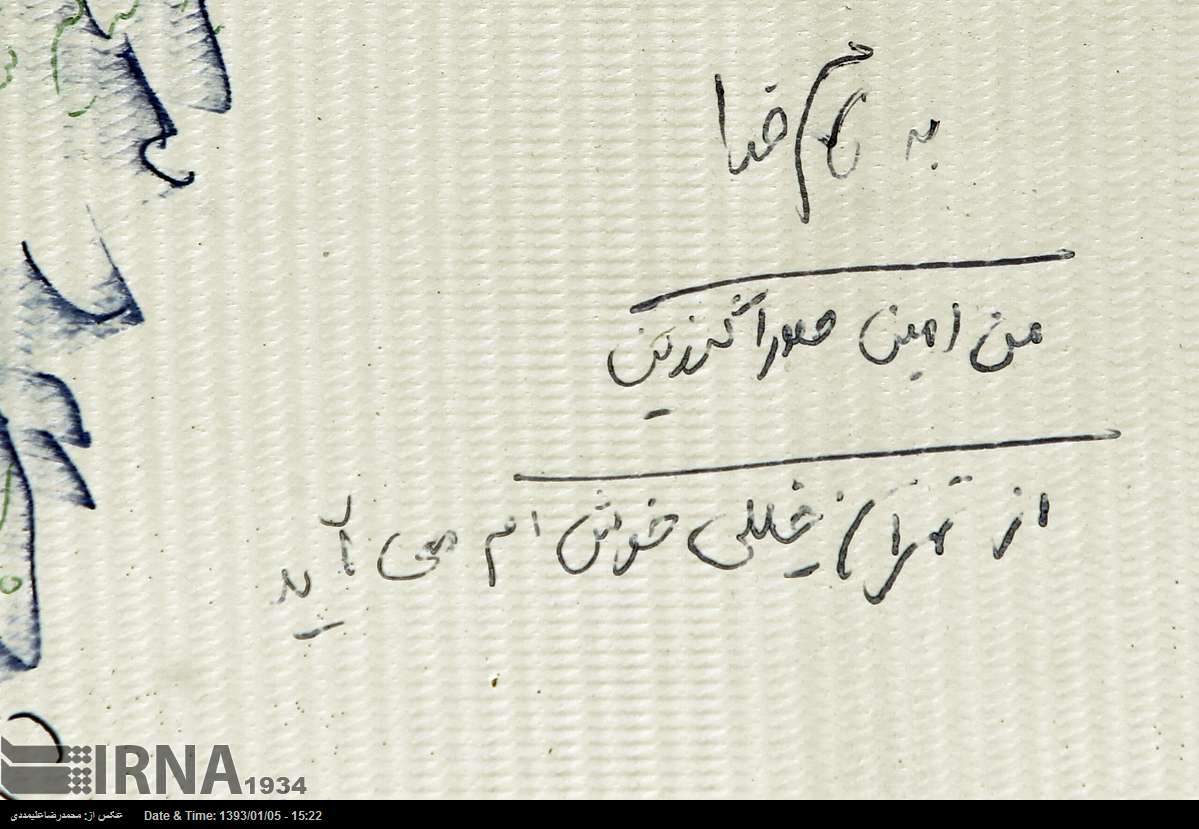 به نام خدا
من امین
از تهران خیلی خوش ام می آید
IRNA 1934
عکس از: محمدرضا علیمددی
Date & Time: 1393/01/05 - 15:22